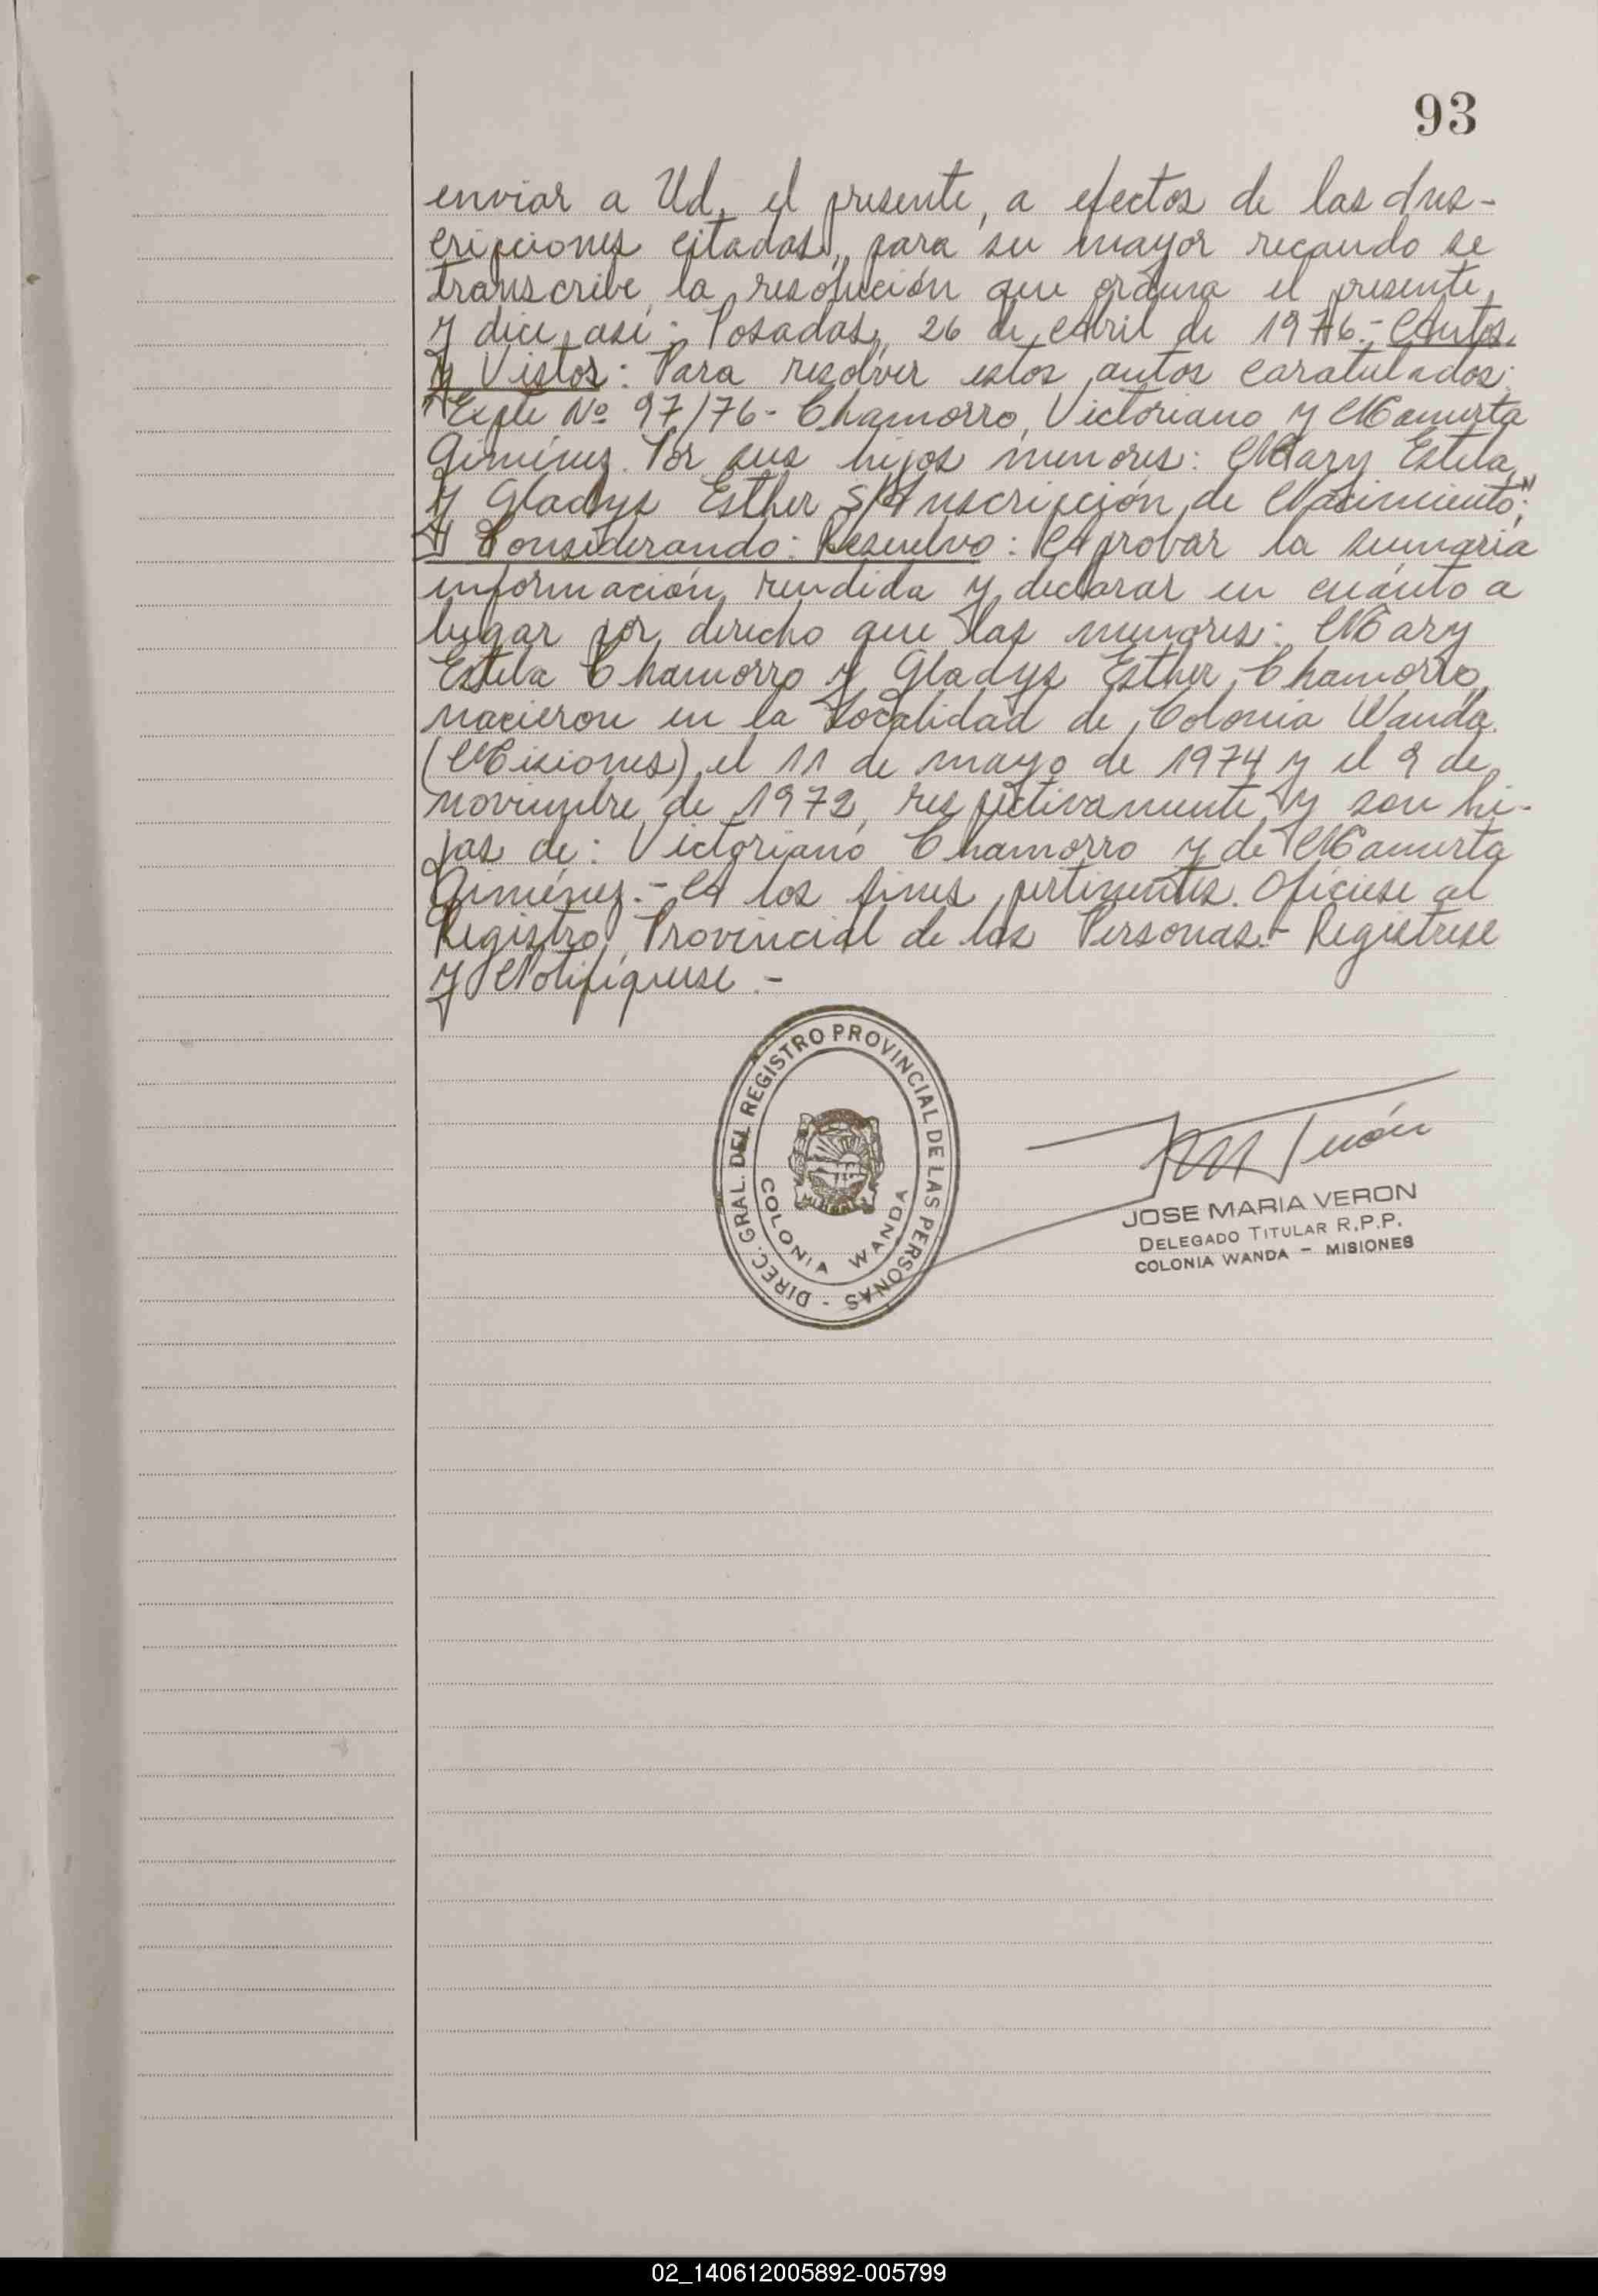 93
enviar a Ud. el presente, a efectos de las Ins-
cripciones citadas, para su mayor recaudo se
transcribe la resolución que ordena el presente,
y dice así: Posadas, 26 de Abril de 1976.- Autos
y Vistos: Para resolver estos autos caratulados:
"Expte Nº 97/76- Chamorro, Victoriano y Mamerta
Giménez. Por sus hijos menores: Mary Estela
y Gladys Esther S/Inscripción de Nacimiento";
Y Considerando: Resuelvo: Aprobar la sumaria
información rendida y declarar en cuánto a
lugar por derecho que las menores: Mary
Estela Chamorro y Gladys Esther Chamorro,
nacieron en la Localidad de Colonia Wanda.
(Misiones), el 11 de mayo de 1974 y el 9 de
noviembre de 1972, respectivamente, y son hi-
jas de: Victoriano Chamorro y de Mamerta
Giménez.- A los fines pertinentes. Ofíciese al
Registro Provincial de las Personas.- Regístrese
y Notifíquese.-
DIREC. GRAL. DEL REGISTRO PROVINCIAL DE LAS PERSONAS -
COLONIA WANDA
MISIONES
JOSE MARIA VERON
DELEGADO TITULAR R.P.P.
COLONIA WANDA - MISIONES
02_140612005892-005799